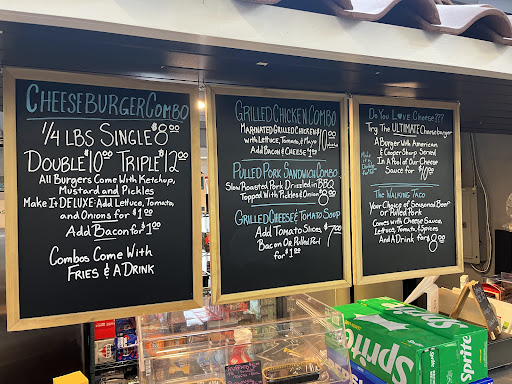 CHEESEBURGER COMBO
1/4 LBS SINGLE $8.00
DOUBLE $10.00 TRIPLE $12.00
ALL BURGERS COME WITH KETCHUP,
MUSTARD AND PICKLES
MAKE IT DELUXE: ADD LETTUCE, TOMATO,
AND ONIONS FOR $1.00
ADD BACON FOR $1.00
COMBOS COME WITH
FRIES & A DRINK
GRILLED CHICKEN COMBO
MARINATED GRILLED CHICKEN $10.00
WITH LETTUCE, TOMATO, & MAYO
ADD BACON & CHEESE $1.00
PULLED PORK SANDWICH COMBO
SLOW ROASTED PORK DRIZZLED IN BBQ
TOPPED WITH PICKLES & ONION $8.00
GRILLED CHEESE & TOMATO SOUP
ADD TOMATO SLICES, $7.00
BACON OR PULLED PORK
FOR $1.00
DO YOU LOVE CHEESE???
TRY THE ULTIMATE CHEESEBURGER
A BURGER WITH AMERICAN
& COOPER SHARP SERVED
IN A POOL OF OUR CHEESE
SAUCE FOR $10.00
THE WALKING TACO
YOUR CHOICE OF SEASONED BEEF
OR PULLED PORK
COMES WITH CHEESE SAUCE,
LETTUCE, TOMATO, & SPICES
AND A DRINK FOR $8.00
Sprite
Sprite